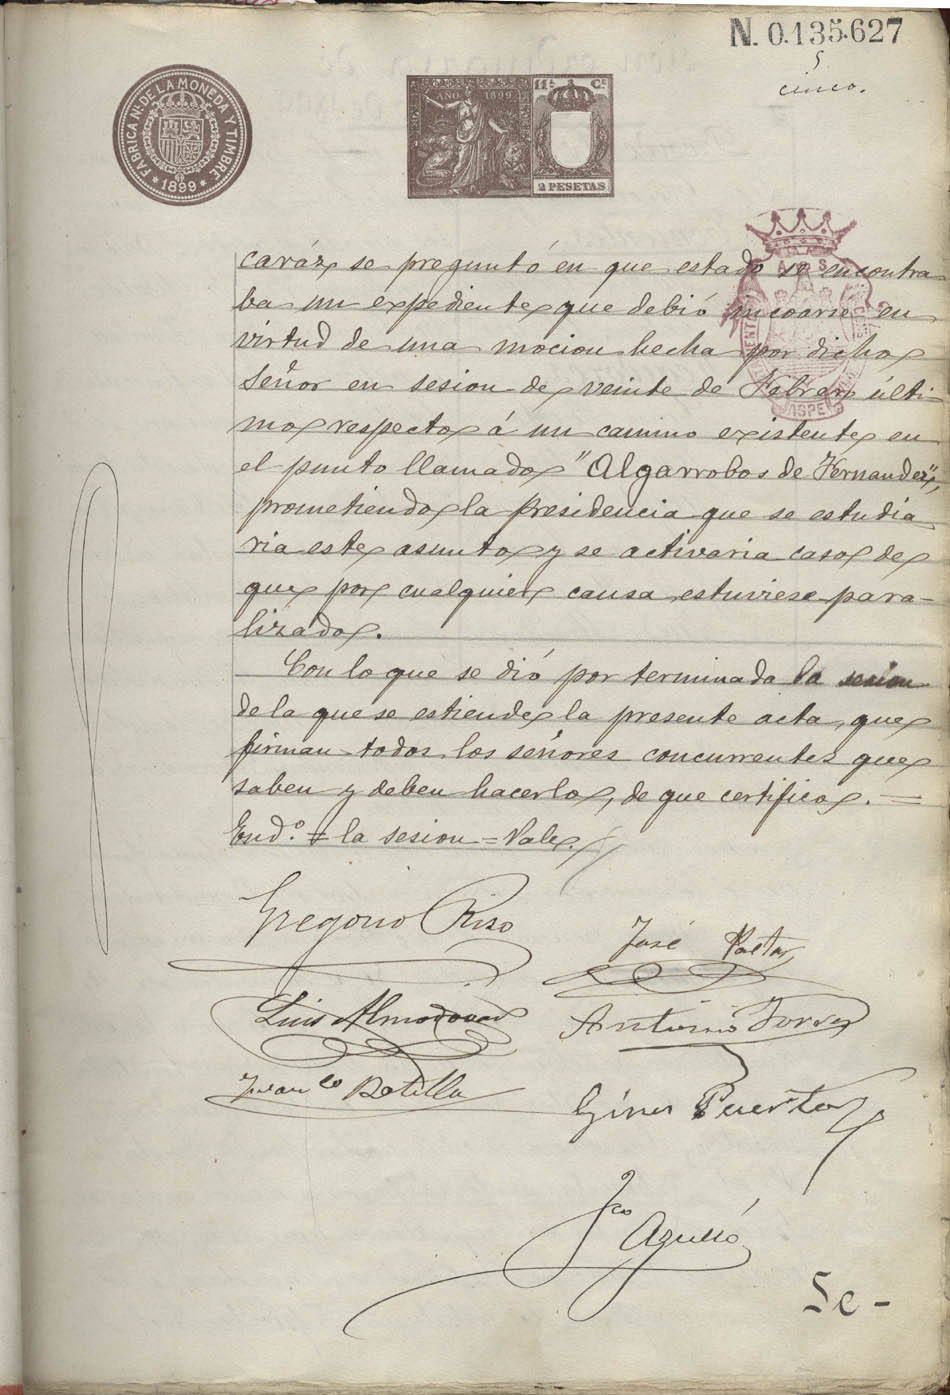 N. 0.135.627
5
cinco.
FABRICA NL. DE LA MONEDA Y TIMBRE
* 1899 *
AÑO 1899
11ª Cª
2 PESETAS
caráz se preguntó en que estado se encontra
ba un expediente que debió incoarse en
virtud de una mocion hecha por dicho
Señor en sesion de veinte de Febrero últi
mo respecto á un camino existente en
el punto llamado "Algarrobos de Fernandez",
prometiendo la Presidencia que se estudia
ria este asunto y se activaria caso de
que por cualquier causa estuviese para-
lizado.
Con lo que se dió por terminada la sesion
de la que se estiende la presente acta, que
firman todos los señores concurrentes que
saben y deben hacerlo, de que certifico. =
Emdº. = la sesion = Vale.
Gregorio Rizo
José Pastor
Luis Almodovar
Antonio Torres
Franco Botella
Ginés Puerto
Fco
5e-